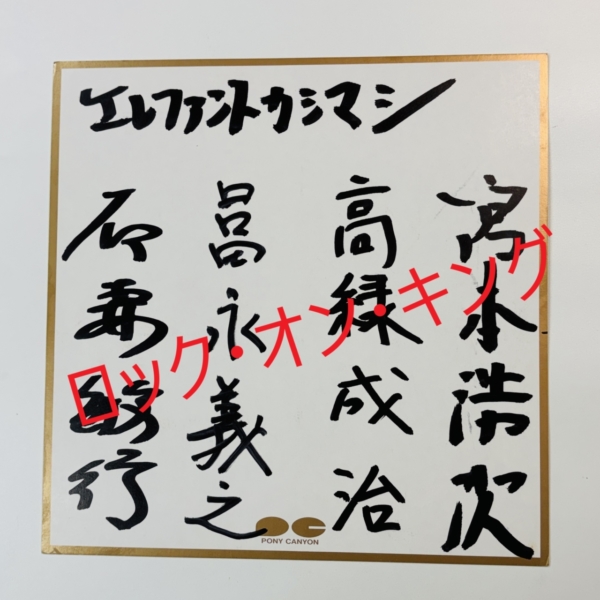 エレファントカシマシ
宮本浩次
高緑成治
冨永義之
石森敏行
ロック・オン・キング
PONY CANYON